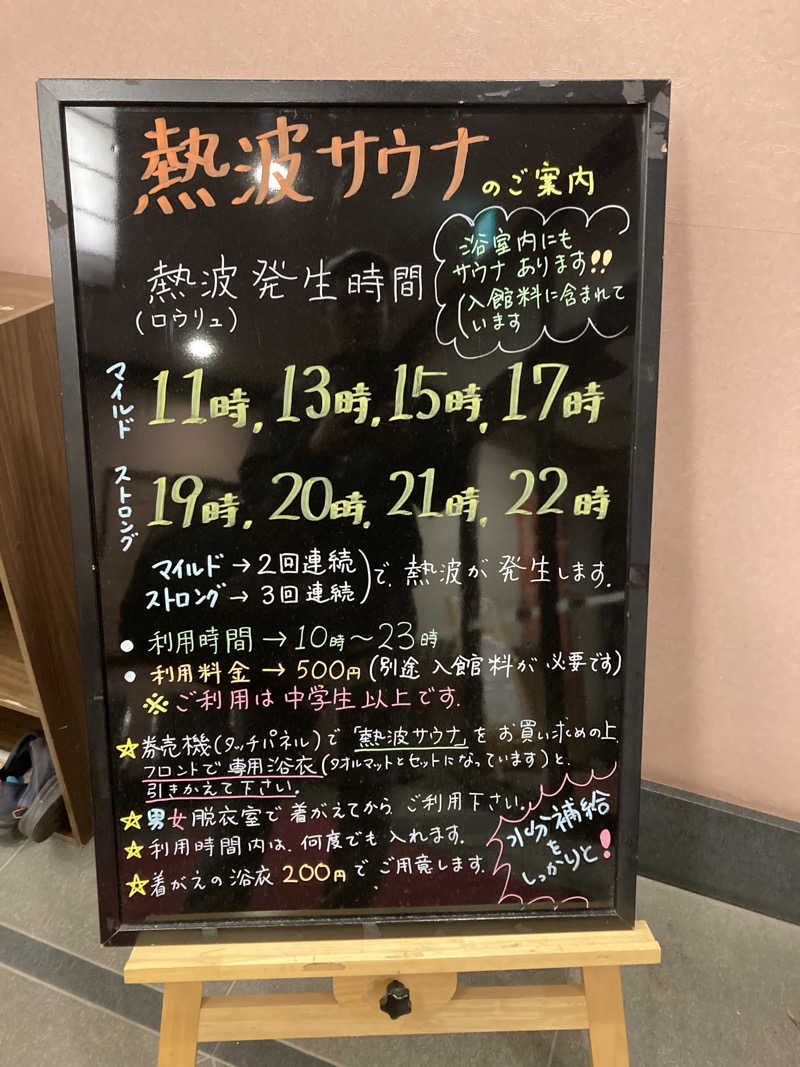 熱波サウナのご案内
浴室内にも
サウナ あります!!
(入館料に含まれて
います
熱波発生時間
(ロウリュ)
マイルド
11時, 13時, 15時, 17時
ストロング
19時, 20時, 21時, 22時
マイルド→2回連続
ストロング→3回連続
)で、熱波が発生します.
• 利用時間→10時〜23時
• 利用料金→500円(別途 入館料が必要です)
※ご利用は中学生以上です.
☆券売機(タッチパネル)で「熱波サウナ」をお買い求めの上、
フロントで専用浴衣(タオルマットとセットになっています)と、
引きかえて下さい。
☆男女脱衣室で着がえてから ご利用下さい。
☆利用時間内は、何度でも入れます.
☆着がえの浴衣200円でご用意します.
水分補給
を
しっかりと!